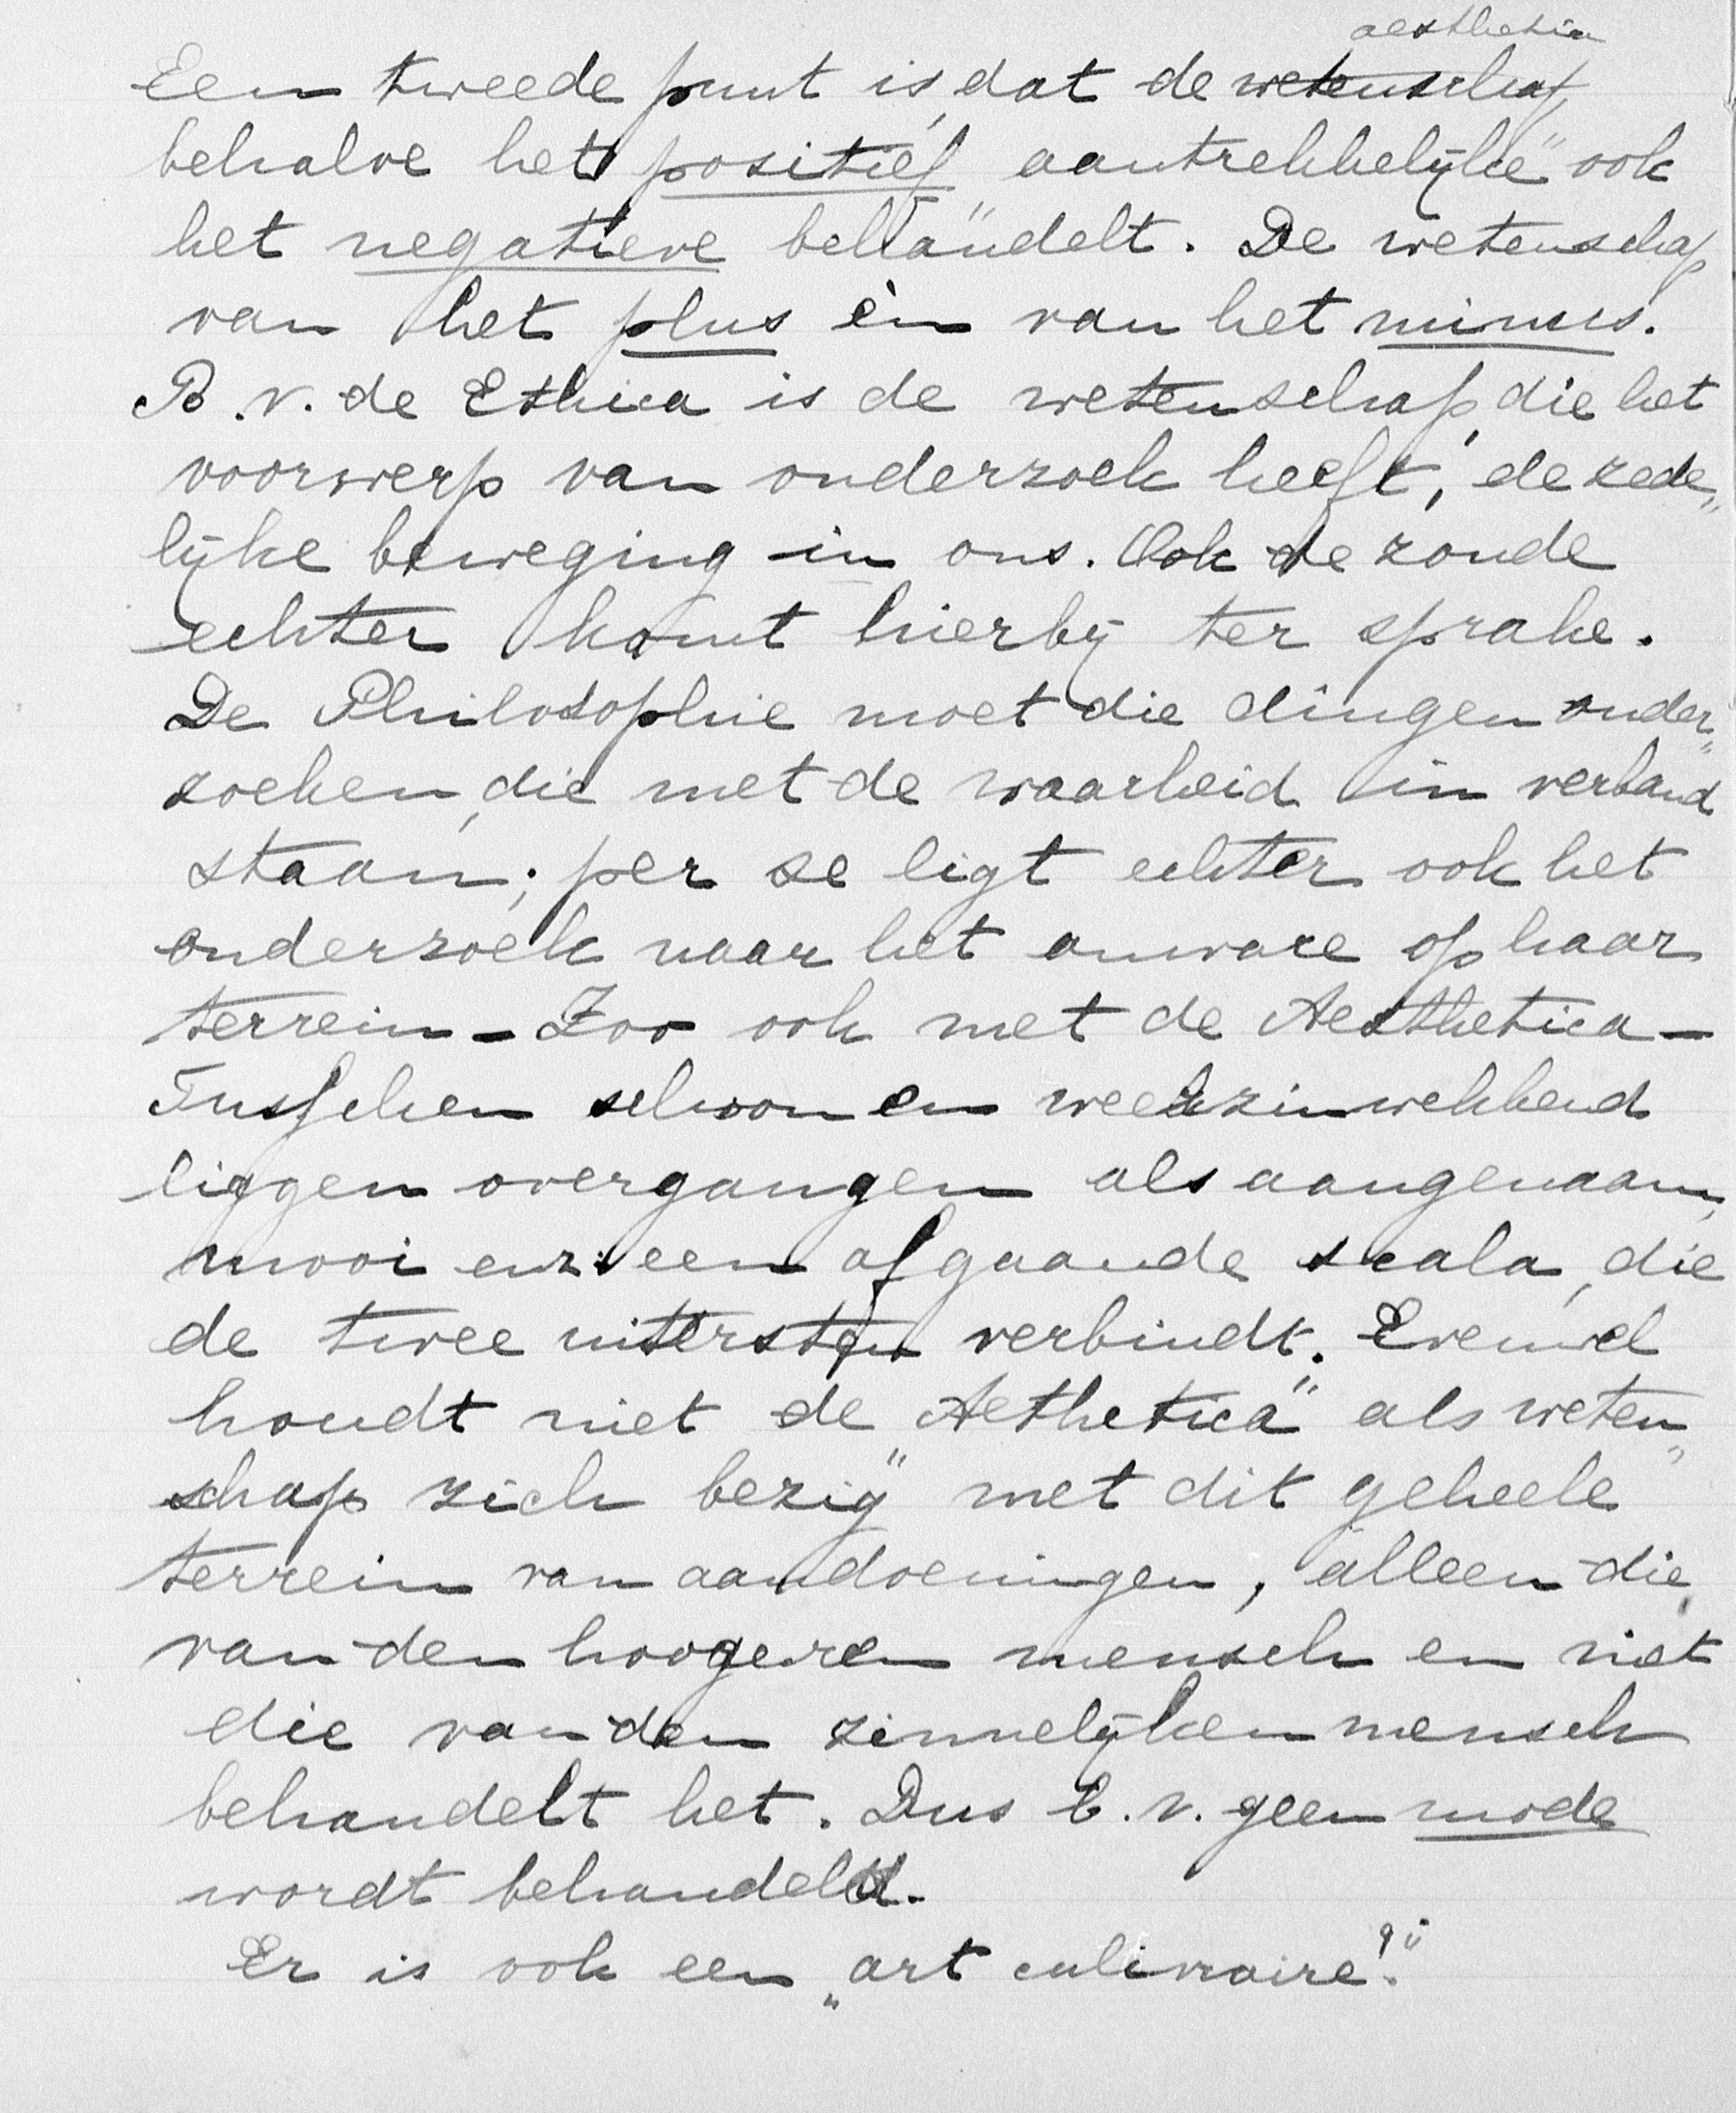 aesthetica
Een tweede punt is, dat de wetenschap,
behalve het positief „aantrekkelijke" ook
het negatieve behandelt. De wetenschap
van het plus èn van het minus.
B.v. de Ethica is de wetenschap, die het
voorwerp van onderzoek heeft, de zede„
lijke beweging in ons. Ook de zonde
echter komt hierbij ter sprake.
De Philosophie moet die dingen onder„
zoeken, die met de waarheid in verband
staan; per se ligt echter ook het
onderzoek naar het onware op haar
terrein – Zoo ook met de Aesthetica –
Tusschen schoon en weerzinwekkend
liggen overgangen als aangenaam,
mooi enz: een afgaande scala, die
de twee uitersten verbindt. Evenwel
houdt niet de „Aethetica" als weten„
schap zich bezig met dit geheele
terrein van aandoeningen, alleen die
van den hoogeren mensch en niet
die van den zinnelijken mensch
behandelt het. Dus b.v. geen mode
wordt behandeld.
Er is ook een „art culinaire"!